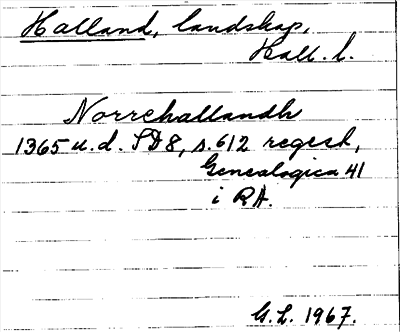 Halland, landskap,
Hall. l.
Norrehallandh
1365 u.d. SD8, s. 612 regest,
Genealogica 41
i RA.
G.L. 1967.